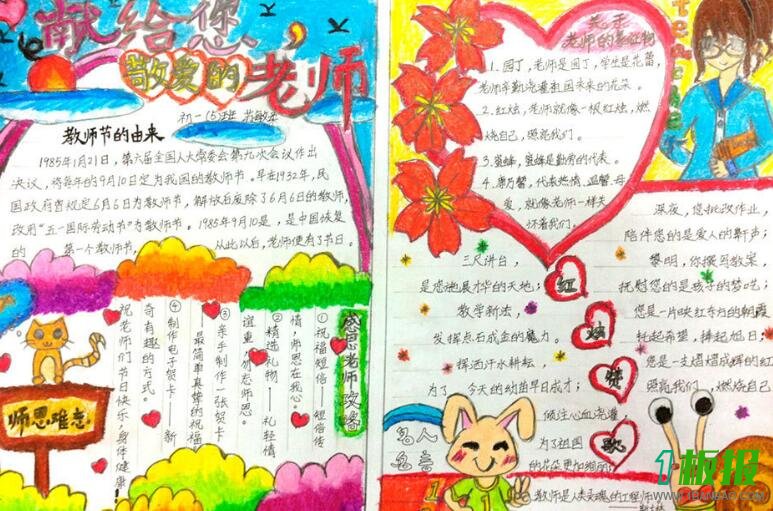 献给您，
敬爱的老师
初一(5)班
教师节的由来
1985年1月21日，第六届全国人大常委会第九次会议作出
决议，将每年的9月10日定为我国的教师节。早在1932年，民
国政府曾规定6月6日为教师节，解放后废除了6月6日的教师，
改用“五一国际劳动节”为教师节。1985年9月10是，是中国恢复
的 第一个教师节， 从此以后，老师便有了节日。
感恩老师攻略
①祝福短信——短信传
情，师恩在我心。
②精选礼物——礼轻情
谊重，勿忘师恩。
③亲手制作一张贺卡
——最简单真挚的祝福
④制作电子贺卡——新
奇有趣的方式。
祝老师们节日快乐，身体健康！
师恩难忘
关于
老师的象征物
1.园丁，老师是园丁，学生是花蕾，
老师辛勤浇灌祖国未来的花朵。
2.红烛，老师就像一根红烛，燃
烧自己，照亮我们。
3.蜜蜂，蜜蜂是勤劳的代表。
4.康乃馨，代表热情、温馨、母
爱，就像老师一样关
怀着我们。
teacher
三尺讲台，
是您施展才华的天地；
教学新法，
发挥点石成金的魔力。
挥洒汗水耕耘，
为了 今天的幼苗早日成才；
倾注心血浇灌，
为了祖国
的花朵更加绚丽。
红
烛
赞
歌
深夜，您批改作业，
陪伴您的是爱人的鼾声；
黎明，你撰写教案，
抚慰您的是孩子的梦呓；
您是一片映红东方的朝霞
托起希望，捧起旭日；
您是一支熠熠成辉的红
照亮我们，燃烧自己
名人
名言
教师是人类灵魂的工程师
1板报
1BANBAO.COM